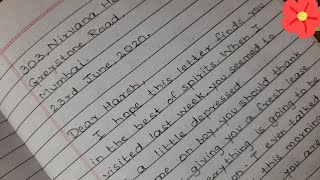 303, Nirvana H
Greystone Road.
Mumbai.
23rd June 2020.
Dear Haresh,
I hope this letter finds you
in the best of spirits. When I
visited last week you seemed to
a little depressed
me on boy, you should thank
giving you a fresh lease
everything is going to be
on. I even talked
this morning
you are